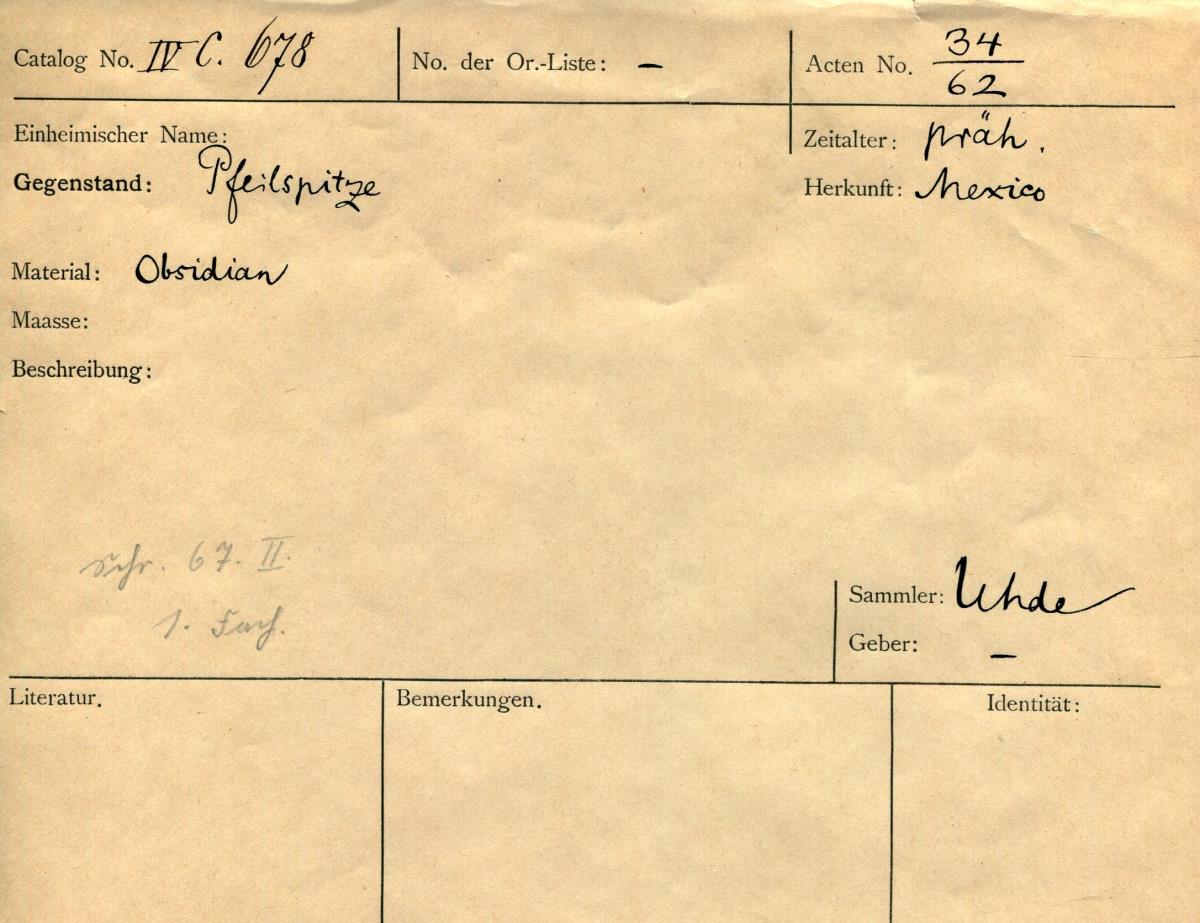 Catalog No. IV C. 678
No. der Or.-Liste: –
Acten No. 34/62
Einheimischer Name:
Zeitalter: präh.
Gegenstand: Pfeilspitze
Herkunft: Mexico
Material: Obsidian
Maasse:
Beschreibung:
Schr. 67. II.
1. Fach.
Sammler: Uhde
Geber: –
Literatur.
Bemerkungen.
Identität: